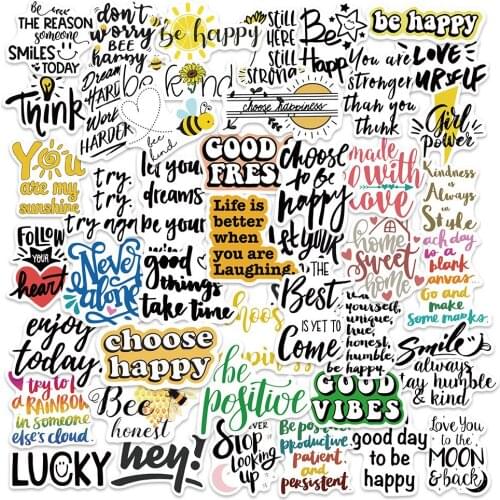 be
THE REASON
someone
SMILES
TODAY
don't
worry
BEE
happy
be happy
still
HERE
still
STRONG
Be
Happy
be happy
Think
Dream
HARD
Work
HARDER
be kind
bee
kind
choose happiness
You are
stronger
than you
think
LOVE
URSELF
Girl
Power
You
are my
sunshine
try.
try.
try again
let your
dreams
be your
GOOD
FRES
choose
to be
happy
made
with
love
Kindness
is
Always
in
Style
FOLLOW
YOUR
heart
Never
alone
good
things
take time
Life is
better
when
you are
Laughing.
let your
home
sweet
home
ach day
to a
blank
anvas.
Go and
make
some marks.
THE
Best
IS YET TO
Come
yourself,
unique,
true
honest,
humble,
be happy
enjoy
today
choose
happy
Smile
always
stay humble
& kind
try to be
a RAINBOW
in someone
else's cloud.
Bee
honest
be
positive
GOOD
VIBES
LUCKY
hey!
STOP
LOOKING
up
Be positive
productive
patient
and
persistent
good day
to be
happy
Love You
to the
MOON
& back